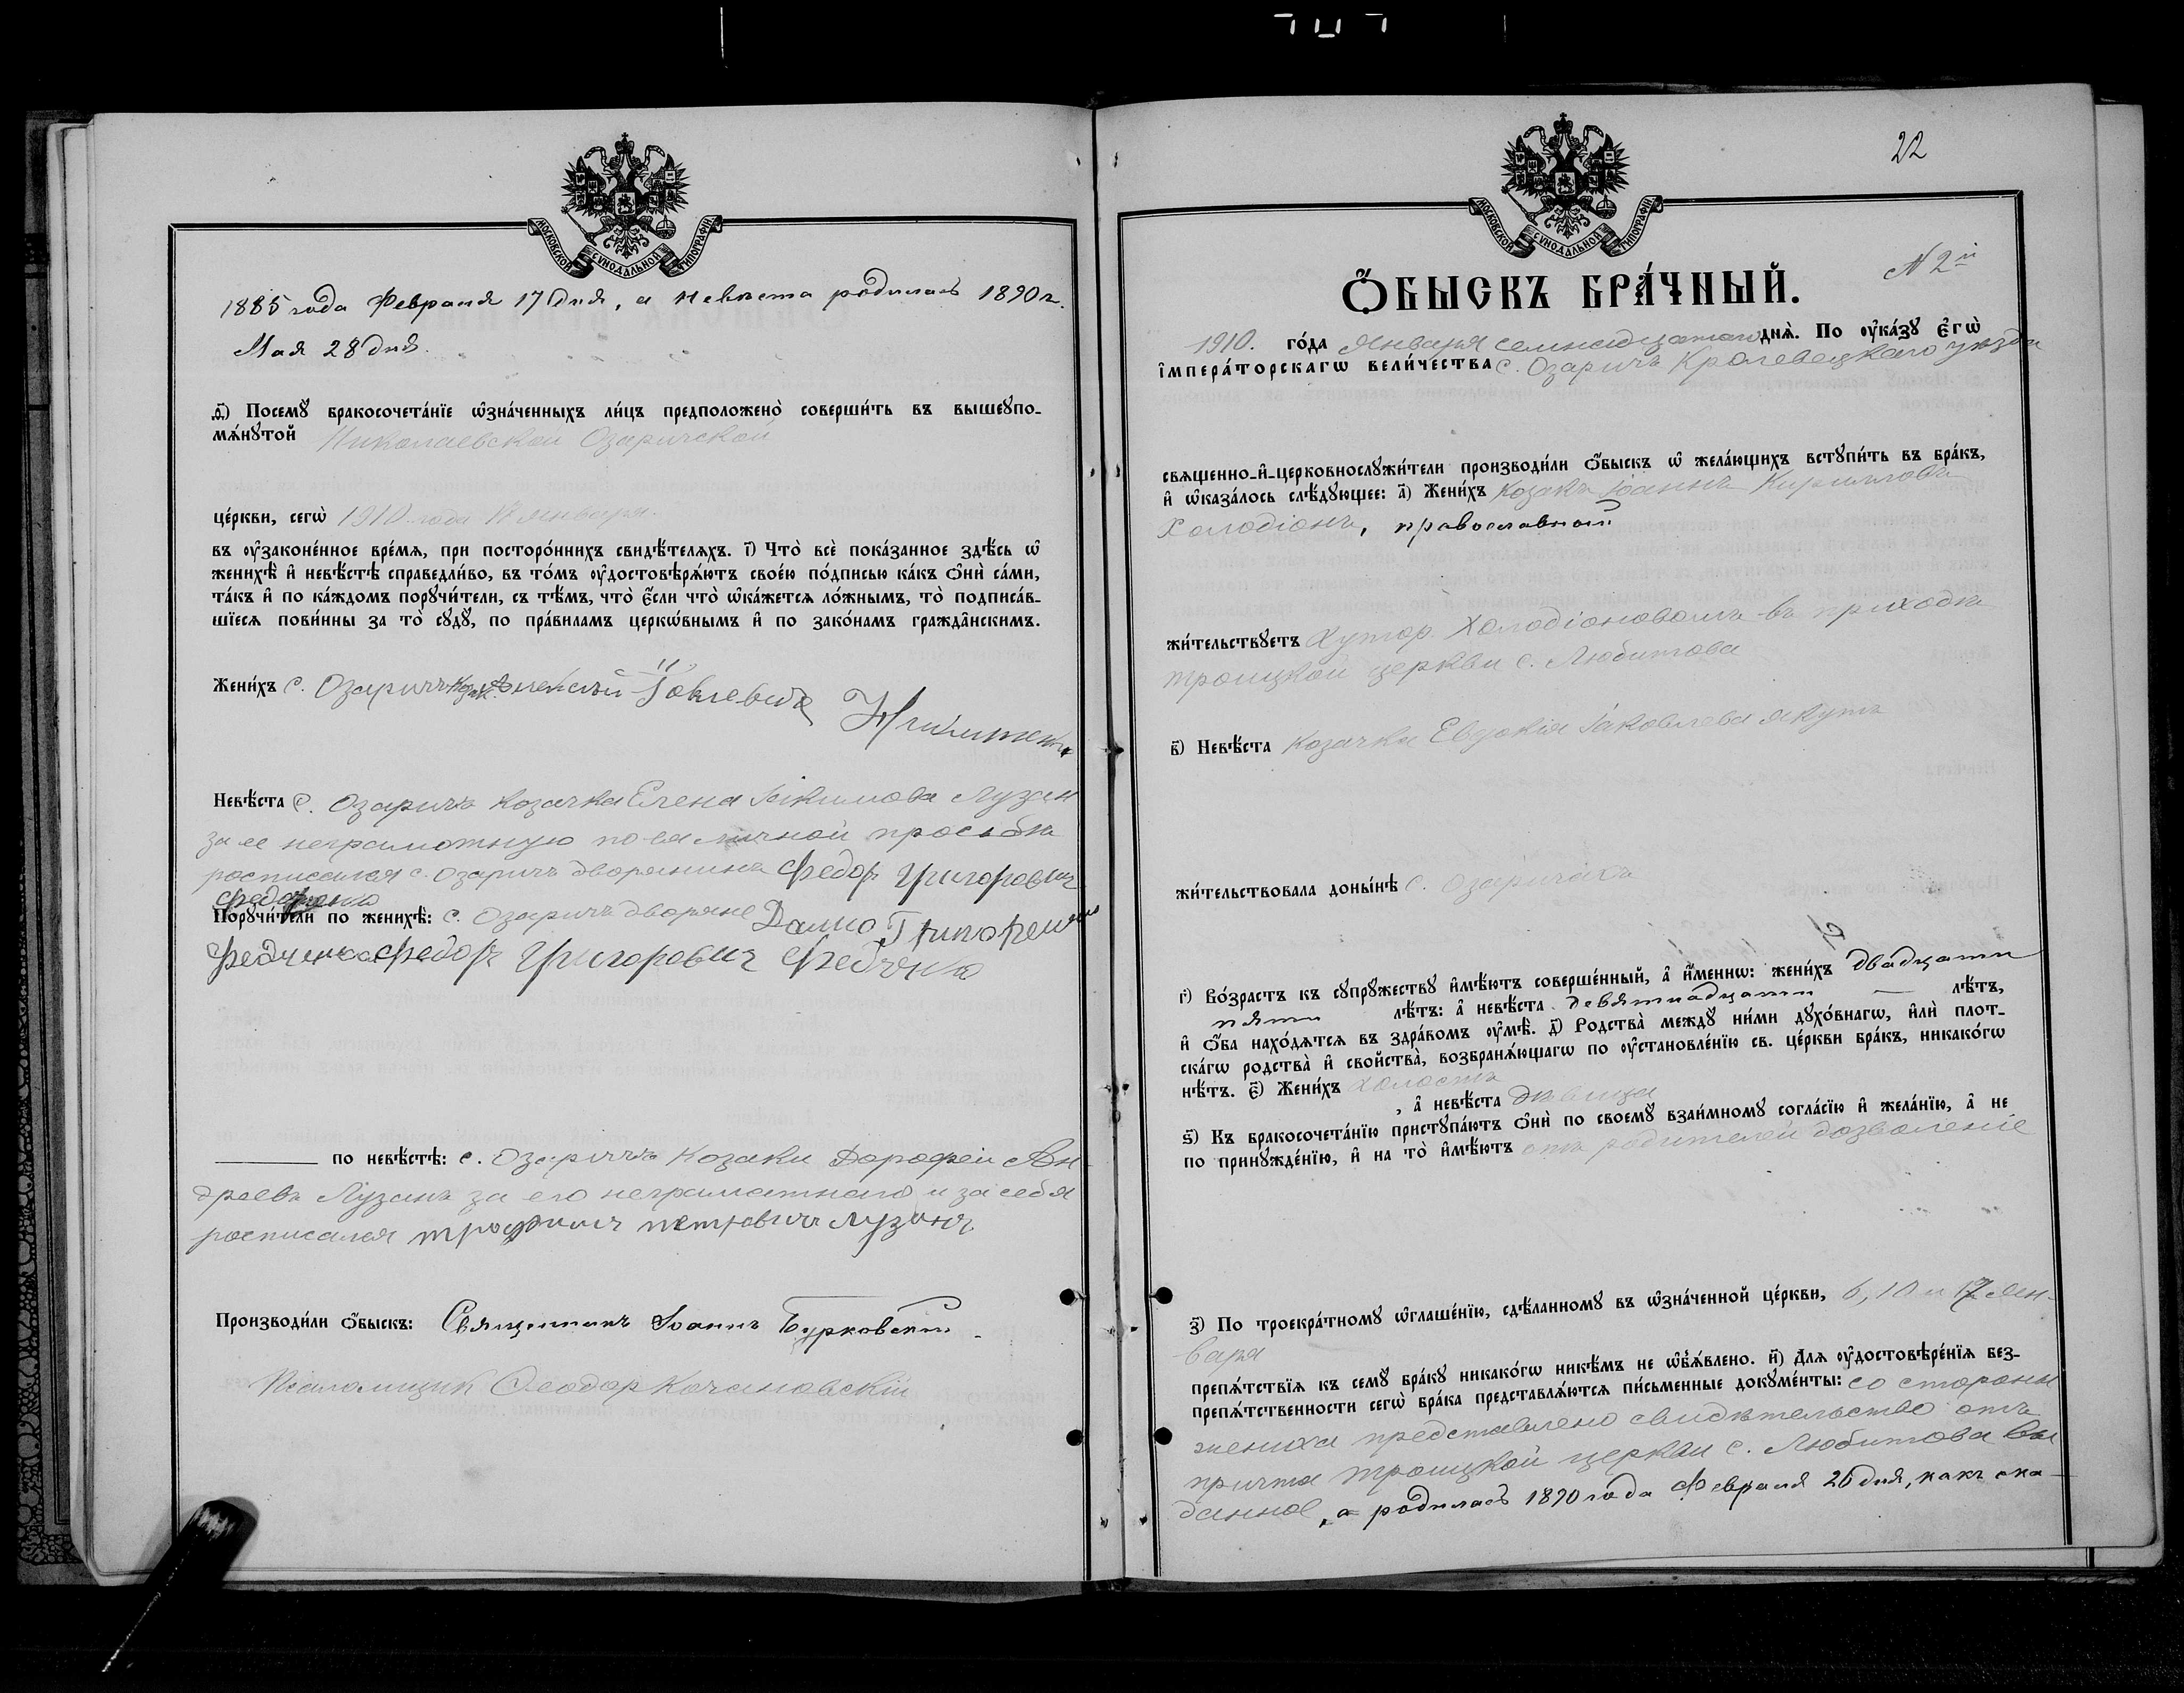 МОСКОВСКОЙ СѴНОДАЛЬНОЙ ТИПОГРАФІИ
1885 года Февраля 17 дня, а невѣста родилась 1890 г.
Мая 28 дня.
Ѳ҃) Посемꙋ̀ бракосочета́нїе ѡ҆зна́ченныхъ ли́цъ предположено̀ соверши́ть въ вышеꙋпо-
мѧ́нꙋтой Николаевской Озаричской
це́ркви, сегѡ̀ 1910 года января.
въ ᲂу҆законе́нное вре́мѧ, при посторо́ннихъ свидѣ́телѧхъ. І҃) Что̀ всѐ пока́занное здѣ́сь ѡ҆
женихѣ̀ и҆ невѣ́стѣ справедли́во, въ то́мъ ᲂу҆достовѣрѧ́ютъ свое́ю по́дписью ка́къ ѻ҆нѝ са́ми,
та́къ и҆ по ка́ждомъ порꙋчи́тели, съ тѣ́мъ, что̀ є҆́сли что̀ ѡ҆ка́жетсѧ ло́жнымъ, то̀ подписа́в-
шїесѧ пови́нны за то̀ сꙋдꙋ̀, по пра́виламъ церкѡ́внымъ и҆ по зако́намъ гражда̑нскимъ.
Жени́хъ с. Озаричъ
Невѣ́ста с. Озаричъ козачка Елена Іакимова Лузан
за ее неграмотную по ея личной просьбѣ
росписался с. Озаричъ дворянинъ Федор Григорович
Федченко
Порꙋчи́тели по женихѣ̀: с. Озаричъ дворяне
Федченко Федор Григорович Федченко
по невѣ́стѣ: с. Озаричъ козаки Дорофей Ан-
дреевъ Лузанъ за его неграмотного и за себя
росписался трофимъ петровичъ лузанъ
Производи́ли ѻ҆́быскъ: Священникъ Іоаннъ Бурковскій.
Псаломщикъ Ѳеодор Качановскій
22
МОСКОВСКОЙ СѴНОДАЛЬНОЙ ТИПОГРАФІИ
N 2й
Ѻ҆́БЫСКЪ БРА́ЧНЫЙ.
1910. го́да Января семнадцатаго днѧ̀. По ᲂу҆ка́зꙋ Є҆гѡ̀
І҆мпера́торскагѡ вели́чества с. Озаричъ Кролевецкаго уѣзда
свѧщенно-и҆-церковнослꙋжи́тели производи́ли ѻ҆́быскъ ѡ҆ жела́ющихъ встꙋпи́ть въ бра́къ,
и҆ ѡ҆каза́лось слѣ́дꙋющее: а҃) Жени́хъ козакъ Іоаннъ Кирилловъ
Холодіонъ, православный
жи́тельствꙋетъ Хутор. Холодіоновомъ въ приходѣ
троицкой церкви с. Любитова
в҃) Невѣ́ста козачка Евдокія Іаковлева якутъ
жи́тельствовала доны́нѣ с. Озаричахъ
г҃) Во́зрастъ къ сꙋпрꙋ́жествꙋ и҆мѣ́ютъ соверше́нный, а҆ и҆́меннѡ: жени́хъ двадцати
пяти лѣ́тъ: а҆ невѣ́ста девятнадцати лѣ́тъ,
и҆ ѻ҆́ба нахо́дѧтсѧ въ здра́вомъ ᲂу҆мѣ̀. д҃) Родства̀ междꙋ̀ ни́ми дꙋхо́внагѡ, и҆лѝ плот-
ска́гѡ родства̀ и҆ сво́йства̀, возбранѧ́ющагѡ по ᲂу҆становле́нїю св. це́ркви бра́къ, никако́гѡ
нѣ́тъ. є҃) Жени́хъ холостъ
, а҆ невѣ́ста дѣвица
ѕ҃) Къ бракосочета́нїю пристꙋпа́ютъ ѻ҆нѝ по своемꙋ̀ взаи́мномꙋ согла́сїю и҆ жела́нїю, а҆ не
по принꙋжде́нїю, и҆ на то̀ и҆мѣ́ютъ отъ родителей дозволеніе
з҃) По троекра́тномꙋ ѡ҆глаше́нїю, сдѣ́ланномꙋ въ ѡ҆зна́ченной це́ркви, 6, 10 и 17 Ян-
варя
препѧ́тствїѧ къ семꙋ̀ бра́кꙋ никако́гѡ никѣ́мъ не ѡ҆б̾ѧ́влено. и҃) Длѧ ᲂу҆достовѣре́нїѧ без-
препѧ́тственности сегѡ̀ бра́ка представлѧ́ютсѧ пи́сьменные докꙋме́нты: со стороны
жениха представлено свидѣтельство отъ
причта троицкой церкви с. Любитова вы
данное, а родилась 1890 года Февраля 26 дня, какъ ска-